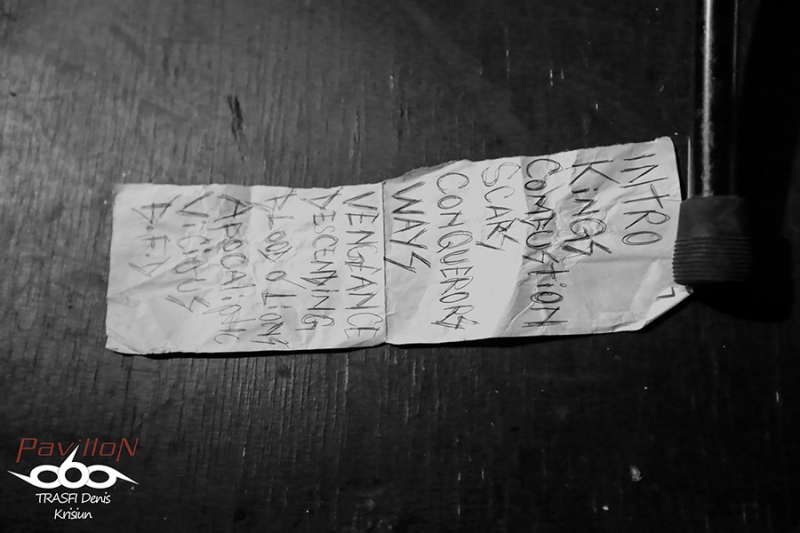 INTRO
KiNGS
COMBUSTiON
SCARS
CONQUERORS
WAYS
VENGEANCE
DESCENDING
BLOOD of LiONS
APOCALiPTiC
ViCiOUS
B.F.D
PavilloN
666
TRASFI Denis
Krisiun